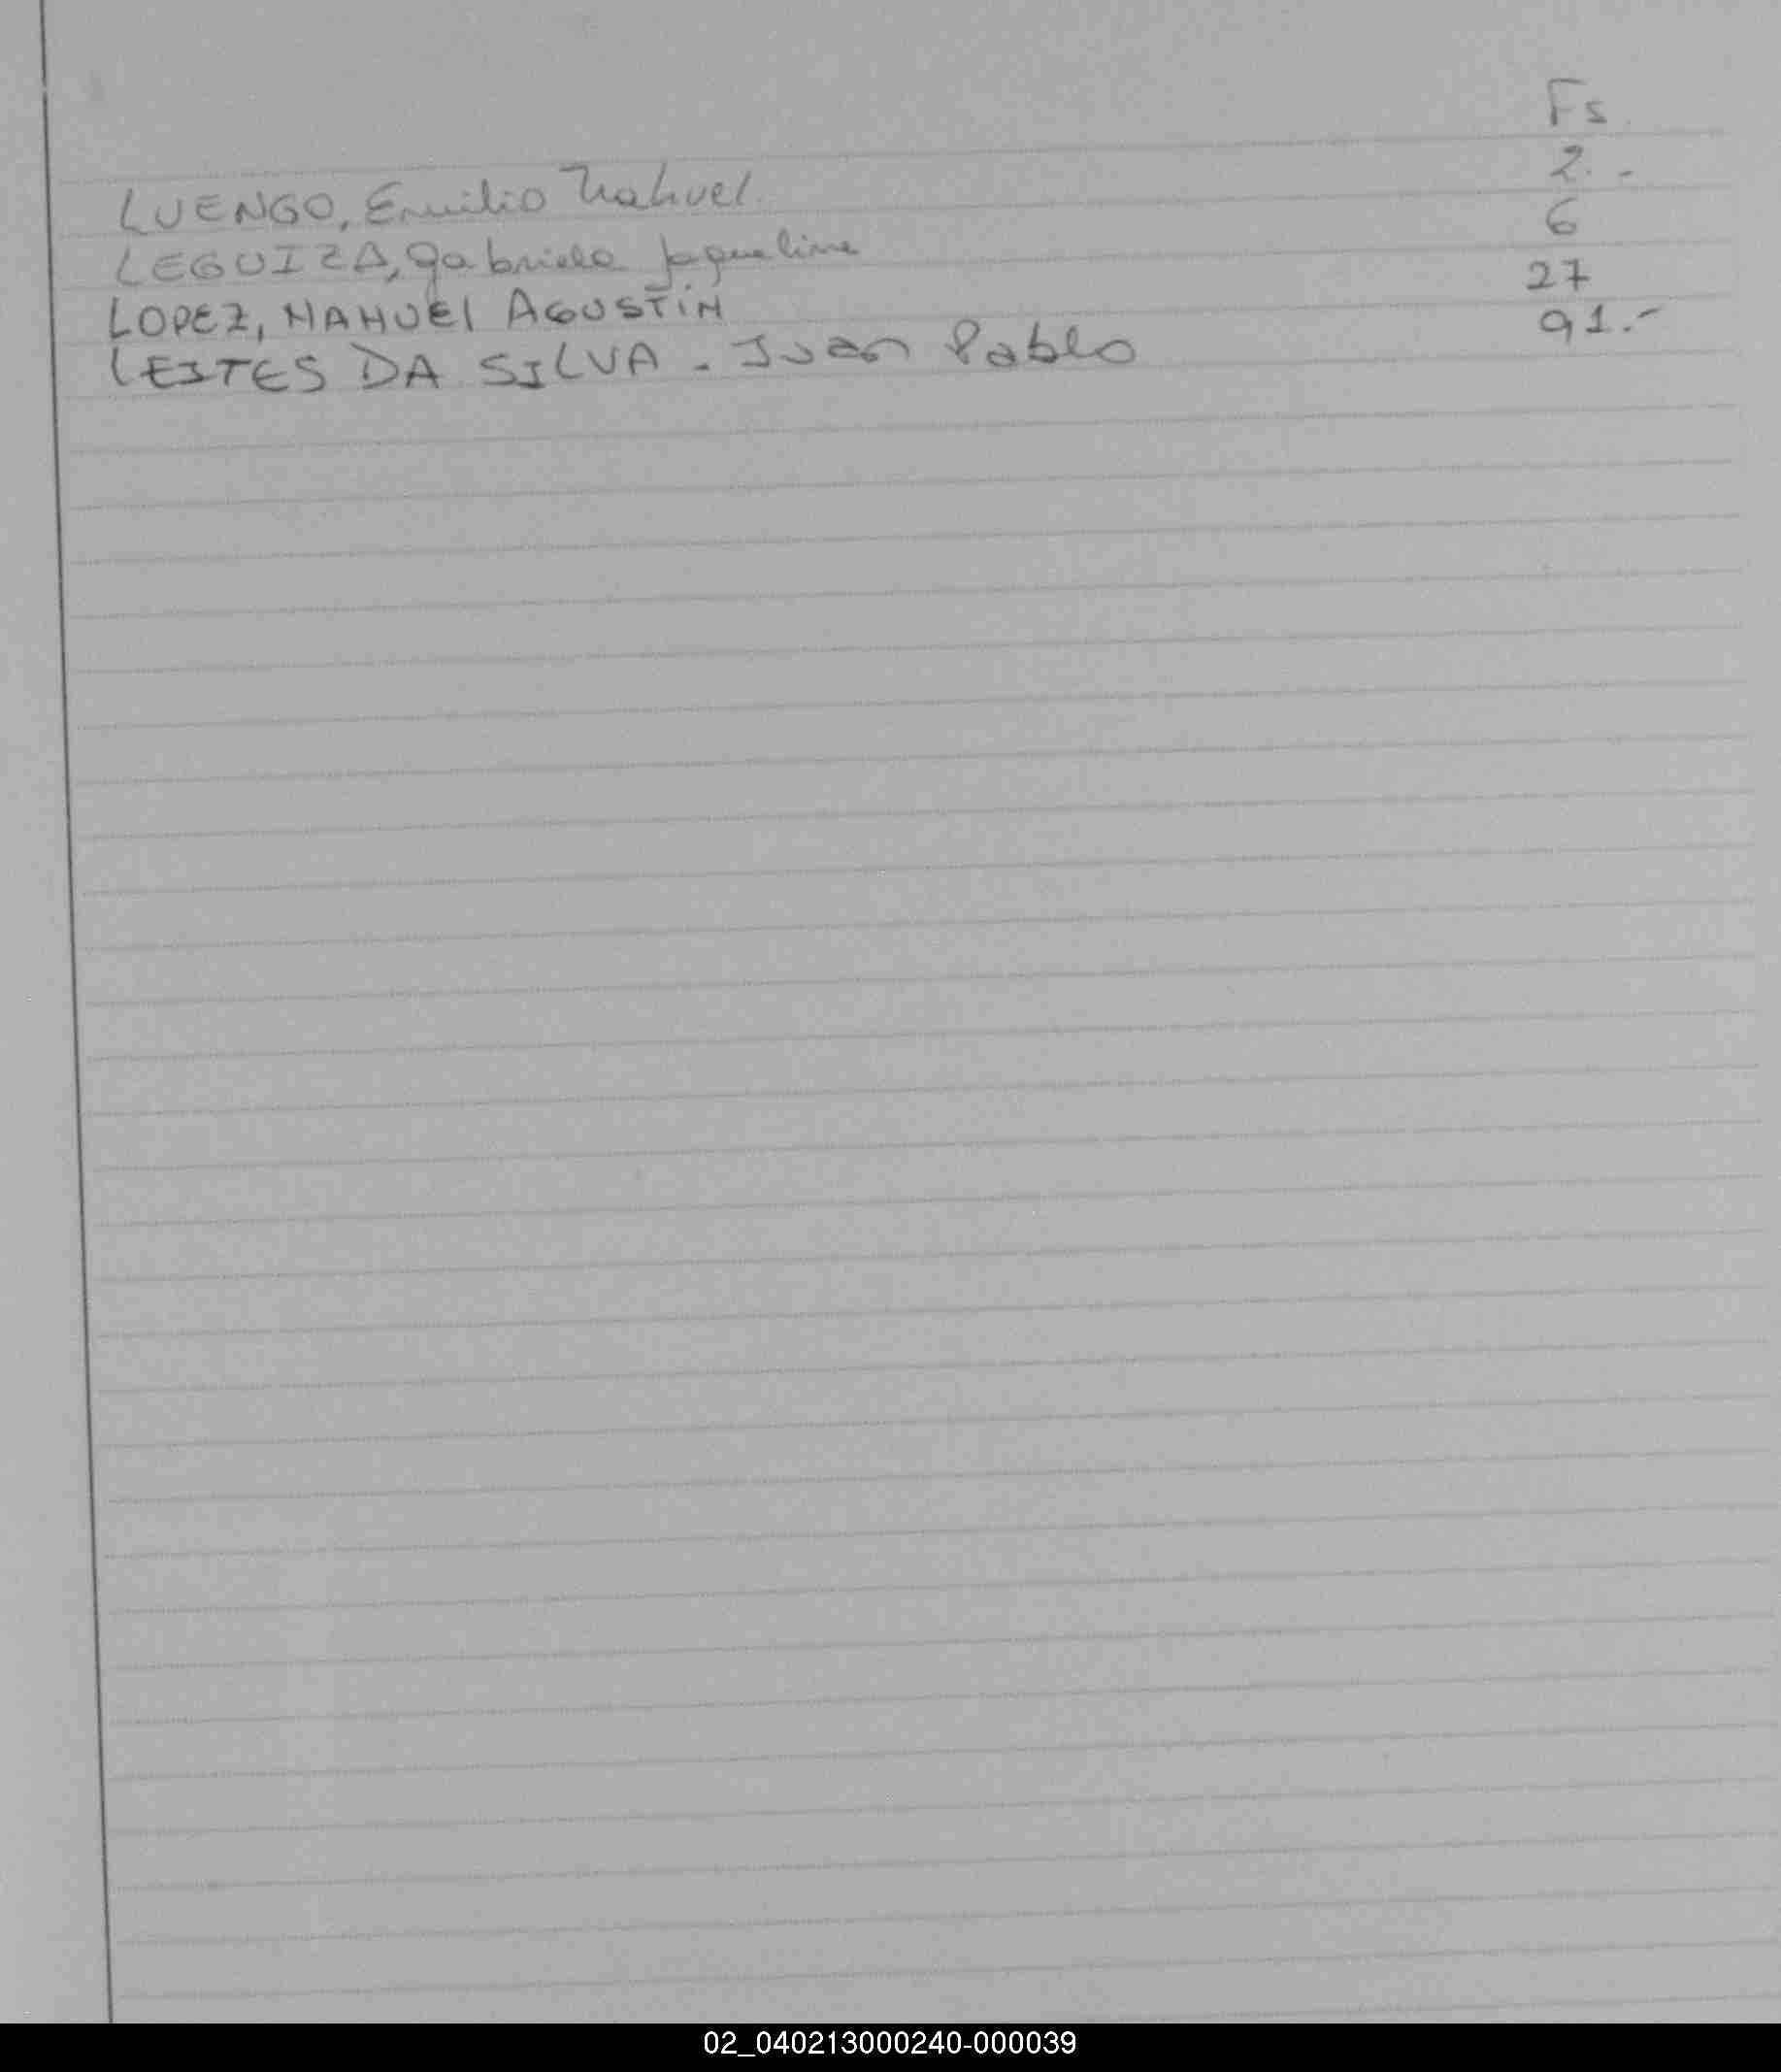 Fs
LUENGO, Emilio Nahuel. 2.-
LEGUIZA, Gabriela Jaqueline 6
LOPEZ, NAHUEl AGUSTíN 27
LEITES DA SILVA - Juan Pablo 91.-
02_040213000240-000039